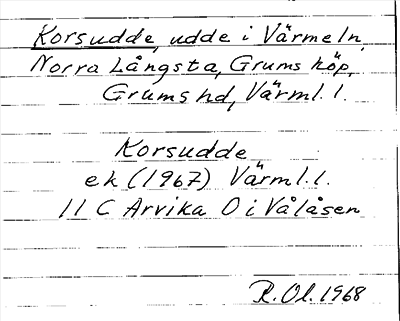 Korsudde, udde i Värmeln,
Norra Långsta, Grums köp,
Grums hd, Värml. l.
Korsudde
ek (1967) Värml. l.
11 C Arvika O i Vålåsen
R. Ol. 1968